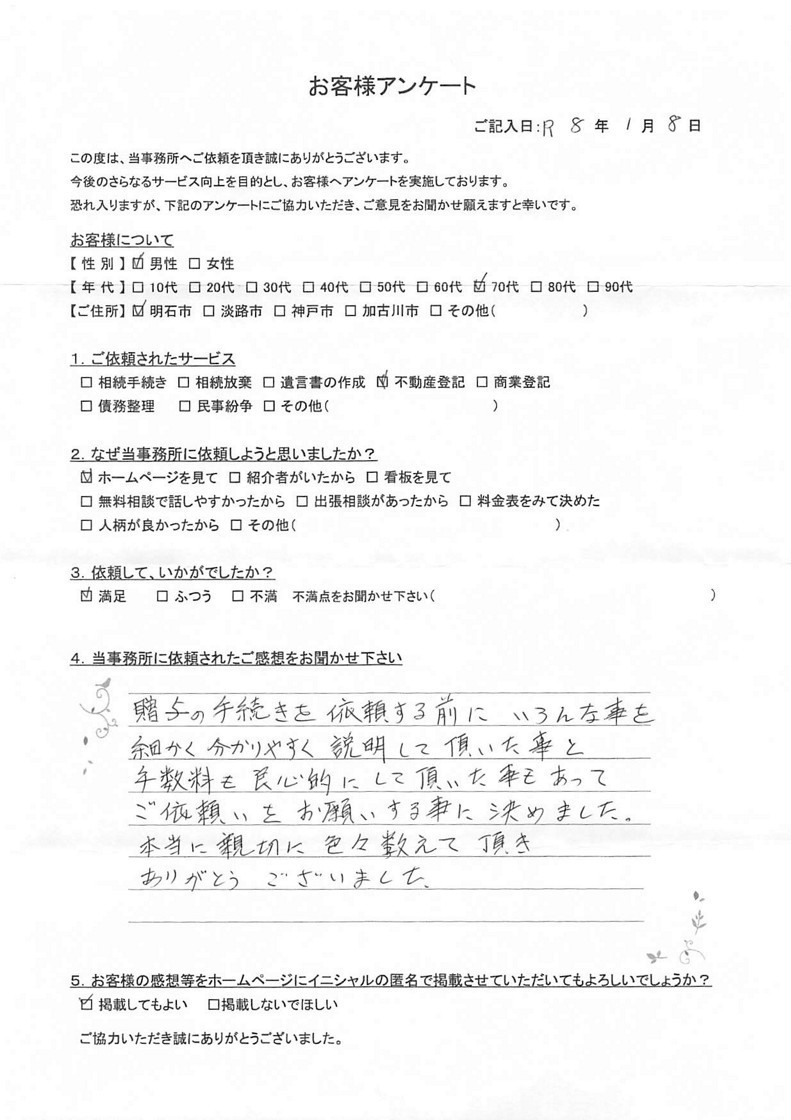 お客様アンケート
ご記入日:R 8 年 1 月 8 日
この度は、当事務所へご依頼を頂き誠にありがとうございます。
今後のさらなるサービス向上を目的とし、お客様へアンケートを実施しております。
恐れ入りますが、下記のアンケートにご協力いただき、ご意見をお聞かせ願えますと幸いです。
お客様について
【 性 別 】☑ 男性 □ 女性
【 年 代 】□ 10代 □ 20代 □ 30代 □ 40代 □ 50代 □ 60代 ☑ 70代 □ 80代 □ 90代
【ご住所】☑ 明石市 □ 淡路市 □ 神戸市 □ 加古川市 □ その他( )
1. ご依頼されたサービス
□ 相続手続き □ 相続放棄 □ 遺言書の作成 ☑ 不動産登記 □ 商業登記
□ 債務整理 □ 民事紛争 □ その他( )
2. なぜ当事務所に依頼しようと思いましたか?
☑ ホームページを見て □ 紹介者がいたから □ 看板を見て
□ 無料相談で話しやすかったから □ 出張相談があったから □ 料金表をみて決めた
□ 人柄が良かったから □ その他( )
3. 依頼して、いかがでしたか?
☑ 満足 □ ふつう □ 不満 不満点をお聞かせ下さい( )
4. 当事務所に依頼されたご感想をお聞かせ下さい
贈与の手続きを 依頼する前に いろんな事を
細かく 分かりやすく 説明して 頂いた事と
手数料も 良心的に して 頂いた 事も あって
ご依頼いを お願いする事に 決めました。
本当に 親切に 色々教えて 頂き
ありがとう ございました。
5. お客様の感想等をホームページにイニシャルの匿名で掲載させていただいてもよろしいでしょうか?
☑ 掲載してもよい □掲載しないでほしい
ご協力いただき誠にありがとうございました。